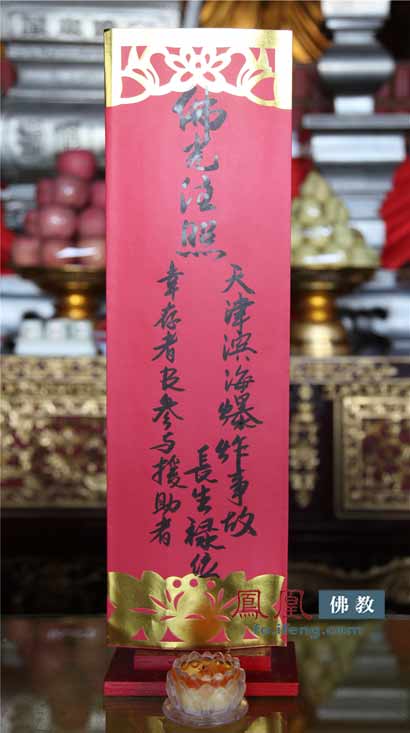 佛光注照
天津滨海爆炸事故
幸存者及参与援助者
長生禄位
鳳凰 佛教
fo.ifeng.com